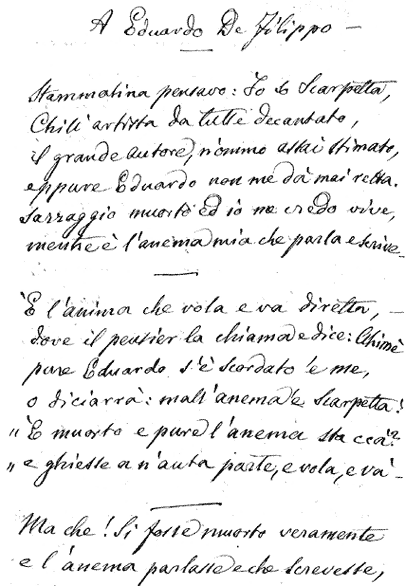 A Eduardo De Filippo –
Stammatina pensavo: Io so Scarpetta,
Chill'artista da tutte decantato,
il grande autore, n'ommo assai stimato,
eppure Eduardo non me dà mai retta.
Sarraggio muorto ed io me credo vivo,
mentre è l'anema mia che parla e scrive –
È l'anima che vola e va diretta, –
dove il pensier la chiama e dice: Ohimè
pure Eduardo s'è scordato 'e me,
o diciarrà: mall'anema 'e Scarpetta!
" È muorto e pure l'anema sta ccà?
" e ghiesse a n'auta parte, e vola, e và –
Ma che! Si fosse muorto veramente
e l'anema parlasse e che screvesse,